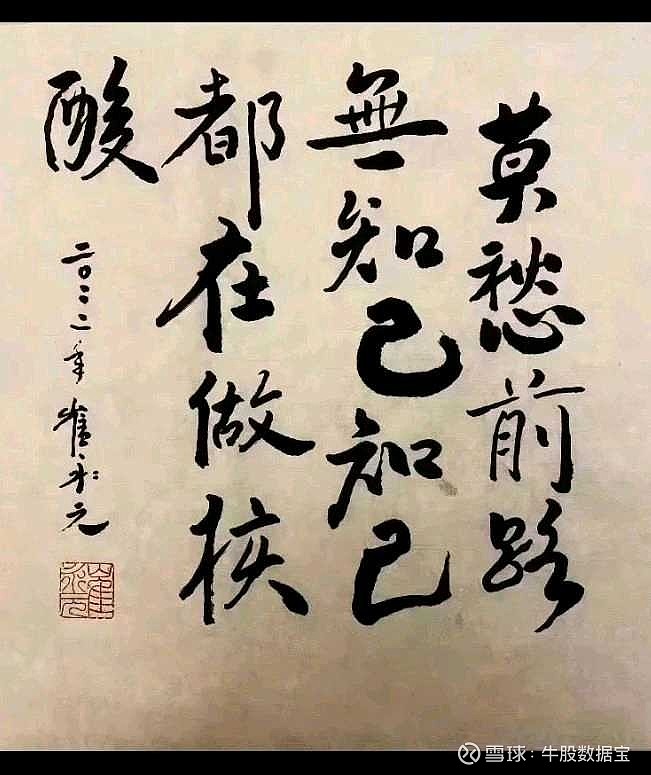 莫愁前路
無知己知己
都在做核
酸
二〇二二年 崔永元
崔永元
雪球：牛股数据宝